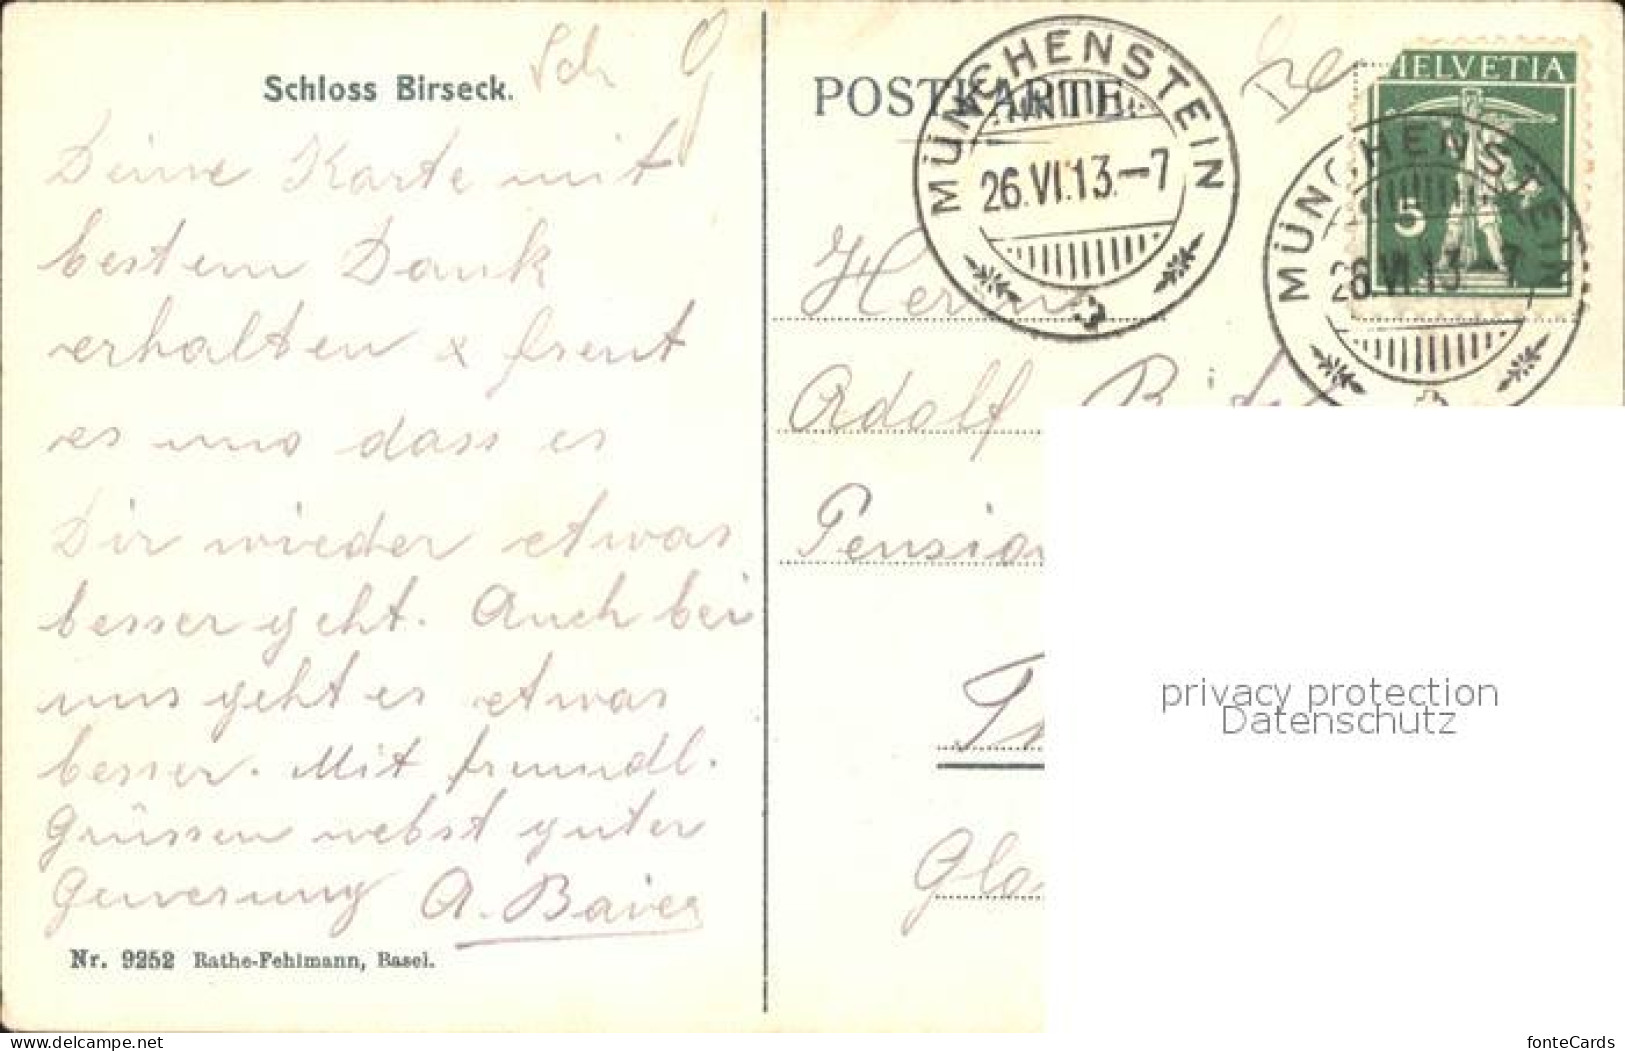 Schloss Birseck.
Sch
Deine Karte mit
bestem Dank
erhalten & freut
es uns dass es
Dir wieder etwas
besser geht. Auch bei
uns geht es etwas
besser. Mit freundl.
Grüssen nebst guter
Genesung A. Baier
Nr. 9252 Rathe-Fehlmann, Basel.
POSTKARTE
MÜNCHENSTEIN
26.VI.13.–7
Be
HELVETIA
5
MÜNCHENSTEIN
26.VI.13–7
Herrn
Adolf
Pension
Gla
privacy protection
Datenschutz
delcampe.net
fonteCards